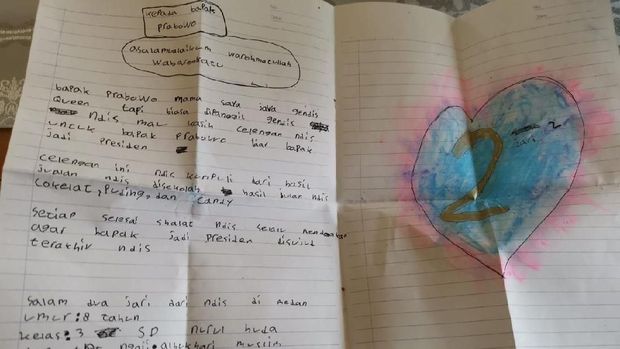 kepada bapak
prabowo
assalamualaikum warohmatullah
wabarokatu
bapak prabowo mama saya java gendis
Queen tapi biasa dipanggil gendis
Ndis mau kasih celengan ndis
untuk bapak prabowo biar bapak
jadi presiden
celengan ini ndis kumpuli dari hasil
jualan ndis disekolah hasil jualan ndis
Cokelat, Puding, dan Candy
setiap selesai shalat ndis selalu
agar bapak jadi presiden
terakhir ndis
salam dua jari dari ndis di medan
umur: 8 tahun
kelas: 3 SD nurul huda
ngaji: albukhari muslim
2
2
jari